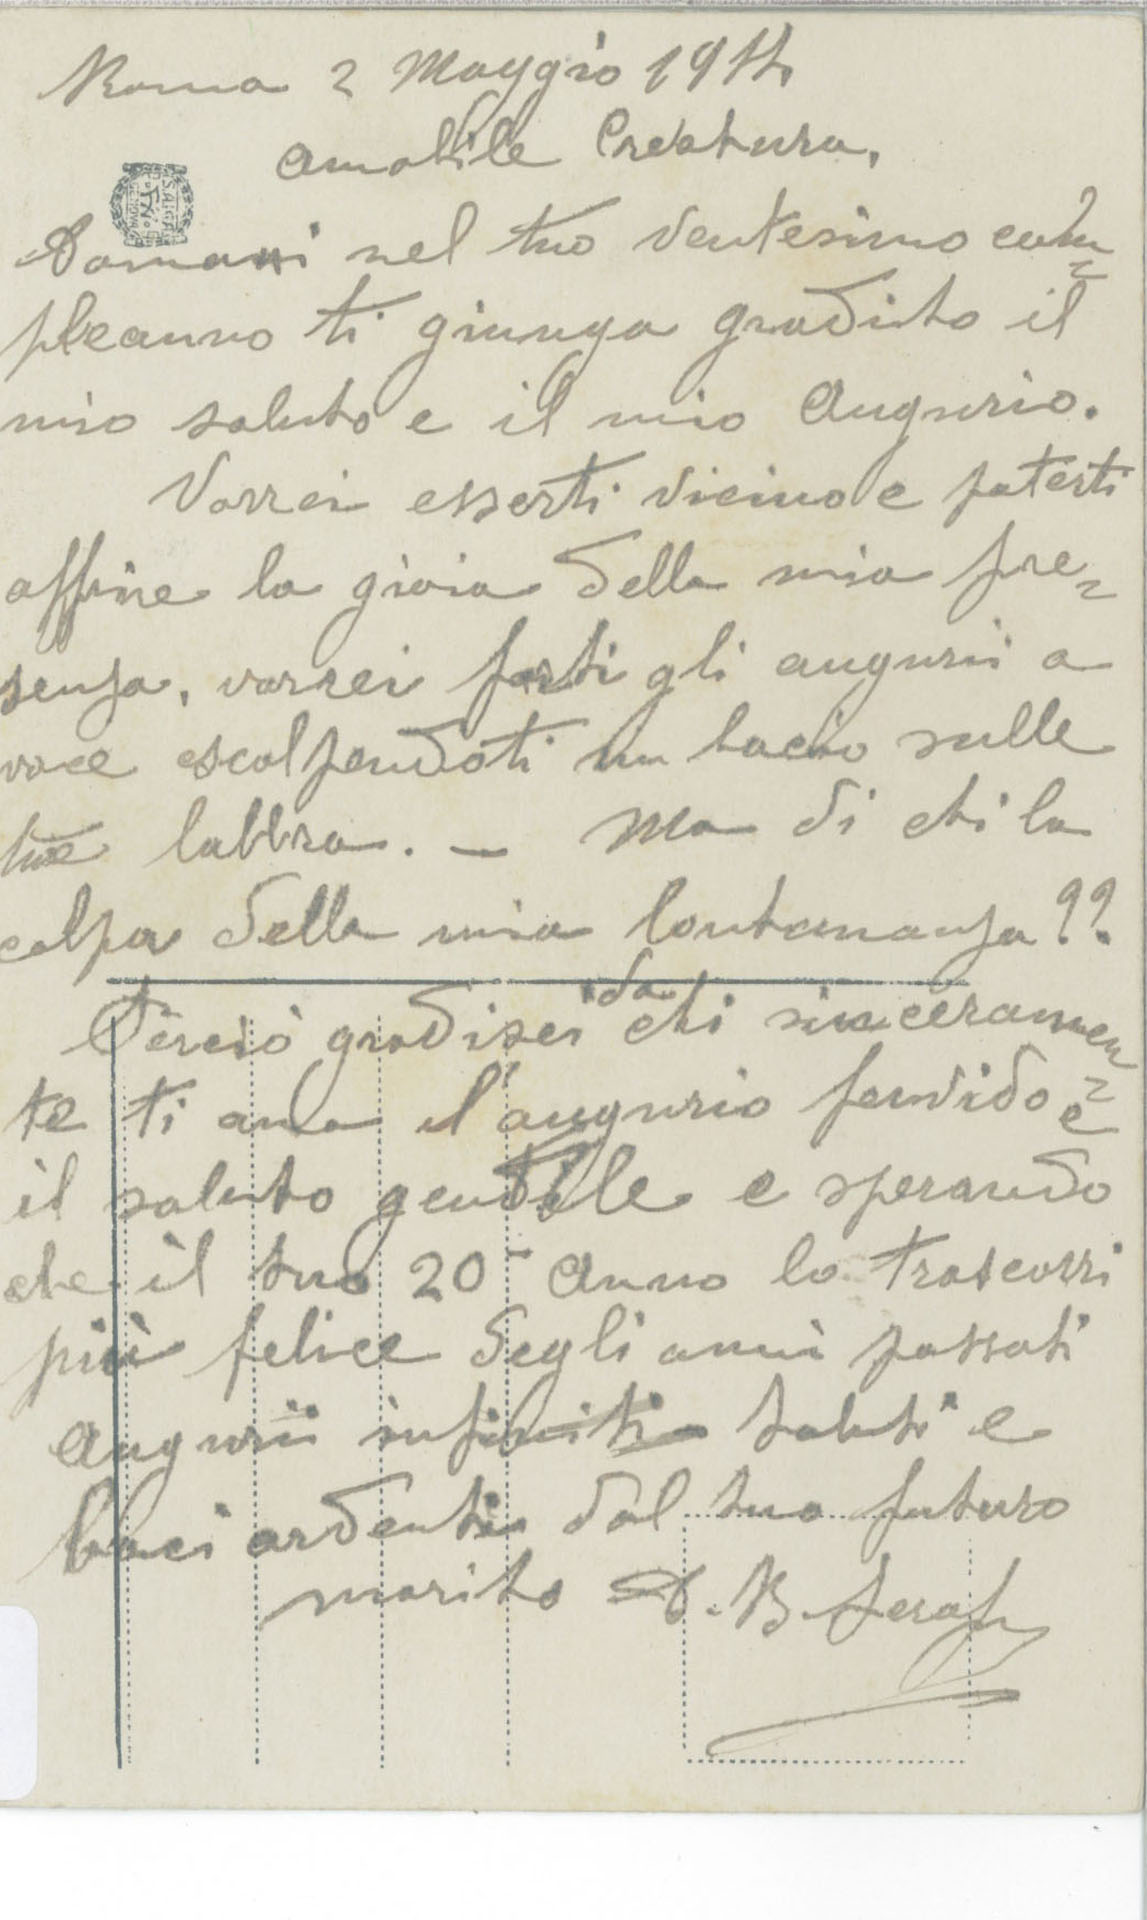 Roma 2 Maggio 1914
Amabile Creatura,
Domani nel tuo ventesimo com=
pleanno ti giunga gradito il
mio saluto e il mio Augurio.
Vorrei esserti vicino e poterti
offrire la gioia della mia pre=
senza, vorrei farti gli augurii a
voce escolpendoti un bacio sulle
tue labbra. — Ma di chi la
colpa della mia lontananza??
Perciò gradisci da chi sinceramen=
te ti ama l'augurio fervido e
il saluto gentile e sperando
che il tuo 20 anno lo trascorri
più felice degli anni passati
Augurii infiniti saluti e
baci ardenti dal tuo futuro
marito B.
SAIGA
GENOVA